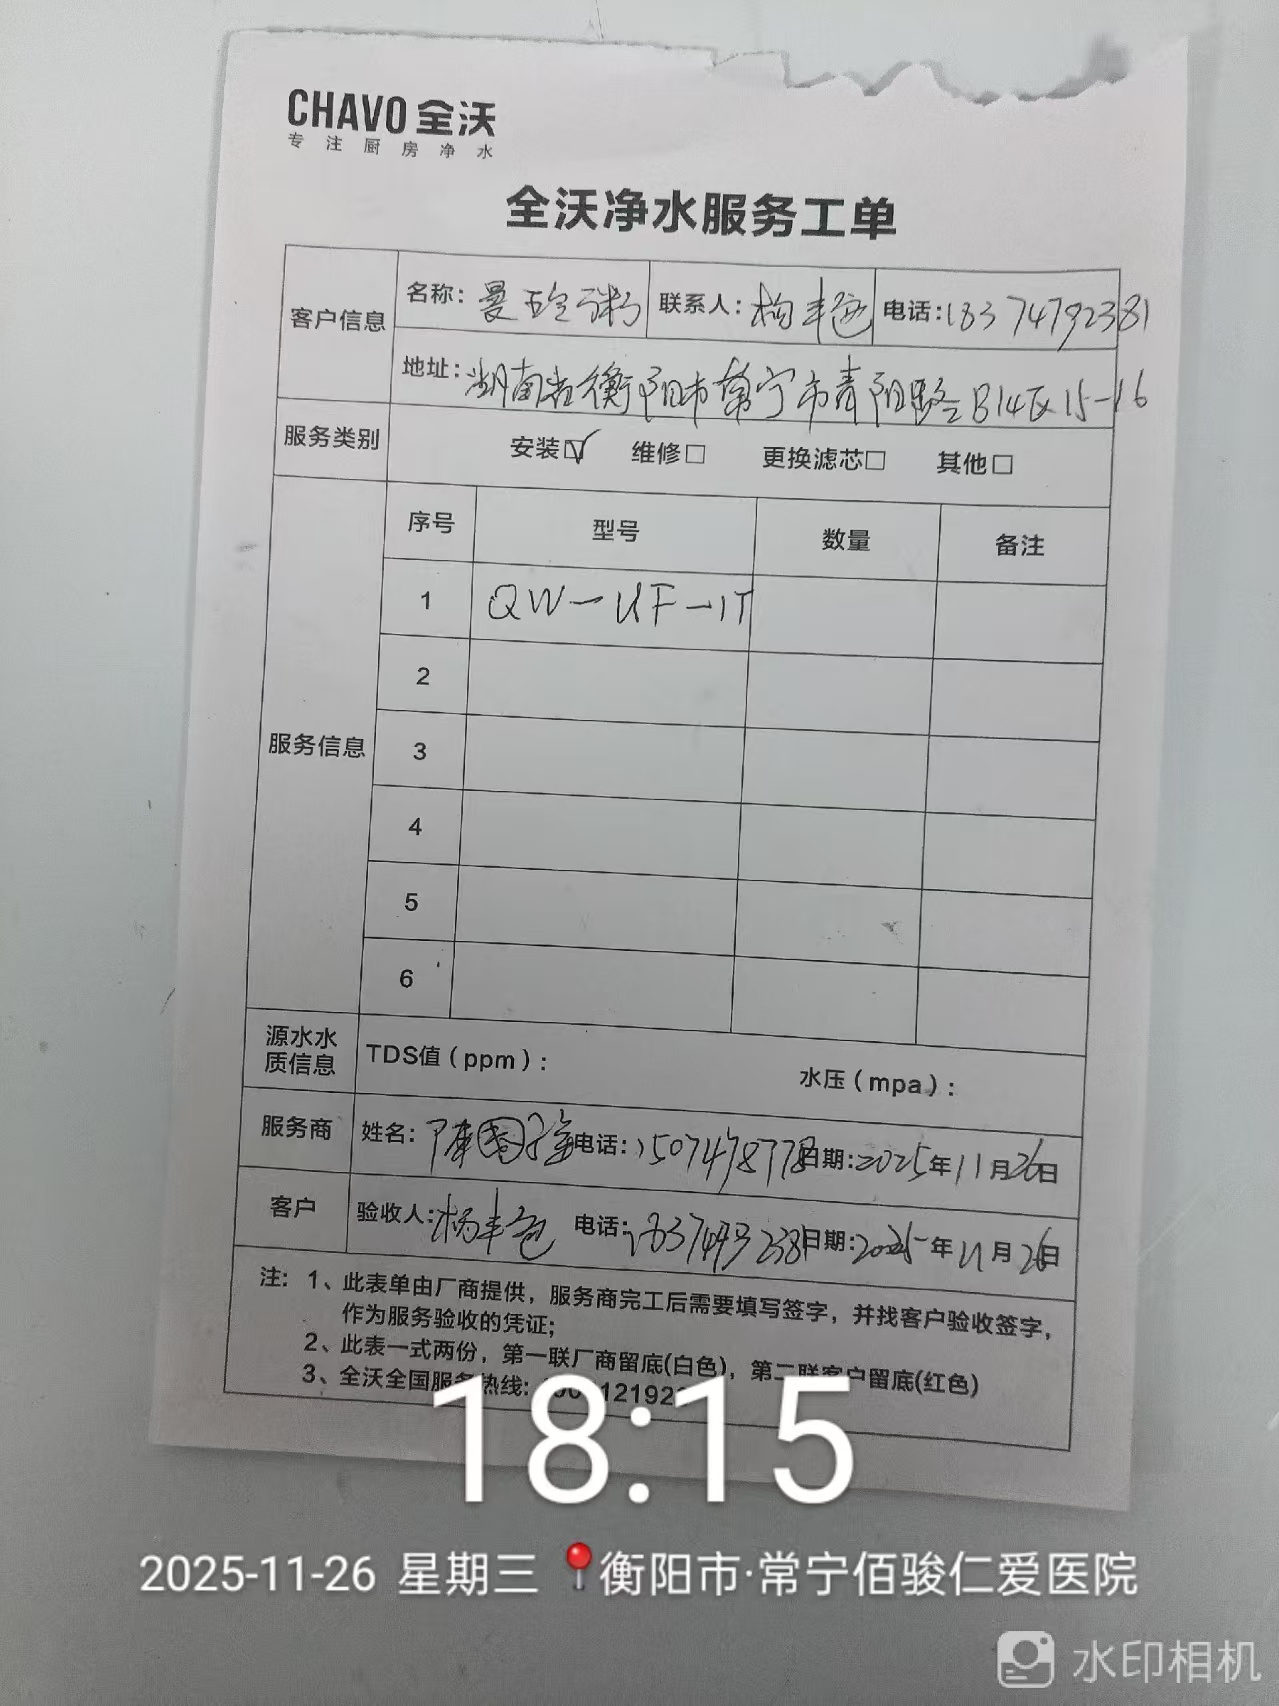 CHAVO 全沃
专注厨房净水
全沃净水服务工单
客户信息
名称: 曼玲粥 联系人: 杨丰 电话: 18374792381
地址: 湖南省衡阳市常宁市青阳路B14区15-16
服务类别 安装☑ 维修□ 更换滤芯□ 其他□
服务信息
序号 型号 数量 备注
1 QW-UF-1T
2
3
4
5
6
源水水质信息 TDS值(ppm): 水压(mpa):
服务商 姓名: 陈国 电话: 1507478778 日期: 2025年11月26日
客户 验收人: 杨丰 电话: 日期: 2025年11月26日
注: 1、此表单由厂商提供，服务商完工后需要填写签字，并找客户验收签字，
作为服务验收的凭证;
2、此表一式两份，第一联厂商留底(白色)，第二联客户留底(红色)
3、全沃全国服务热线:
18:15
2025-11-26 星期三 衡阳市·常宁佰骏仁爱医院
水印相机